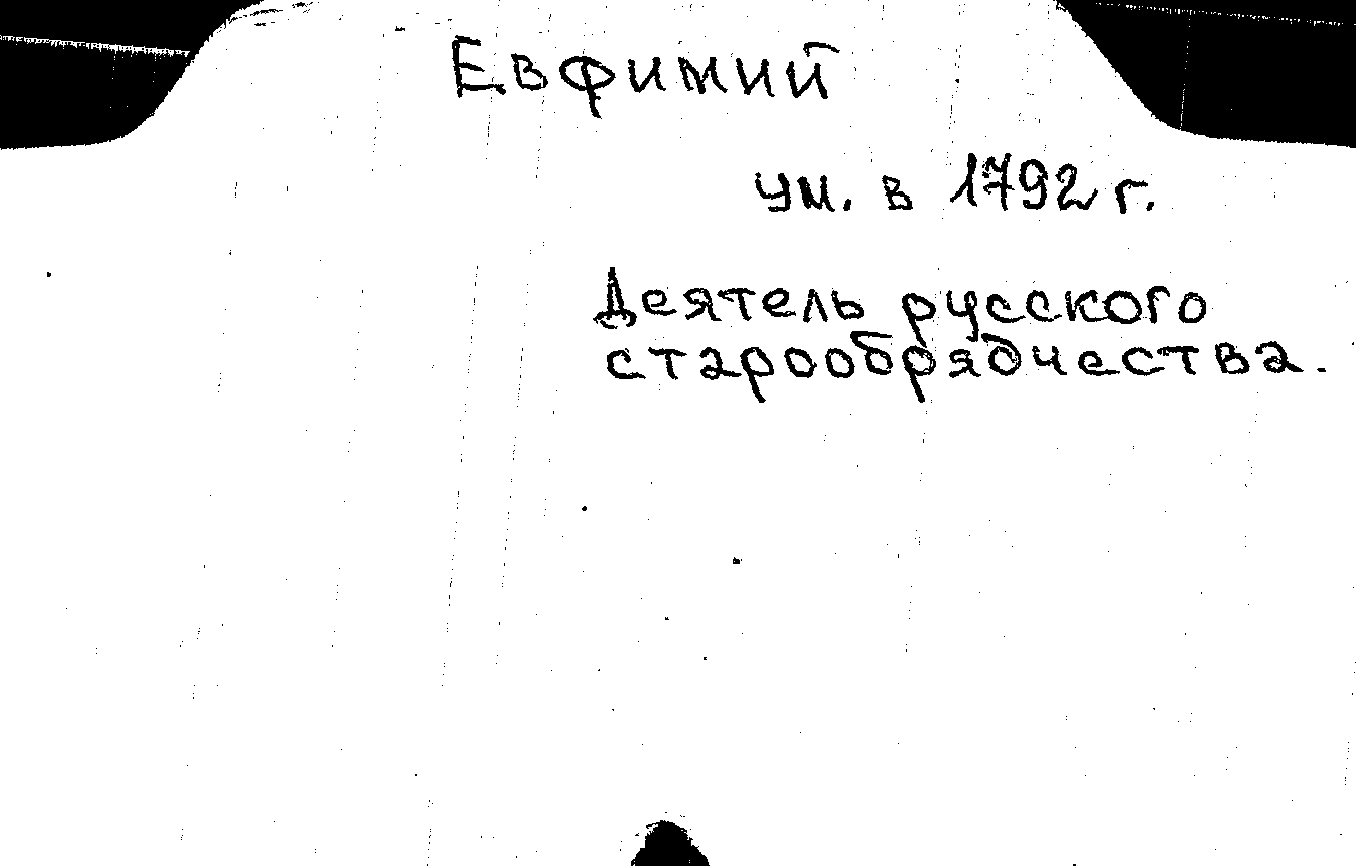 Евфимий
ум. в 1792 г.
Деятель русского
старообрядчества.